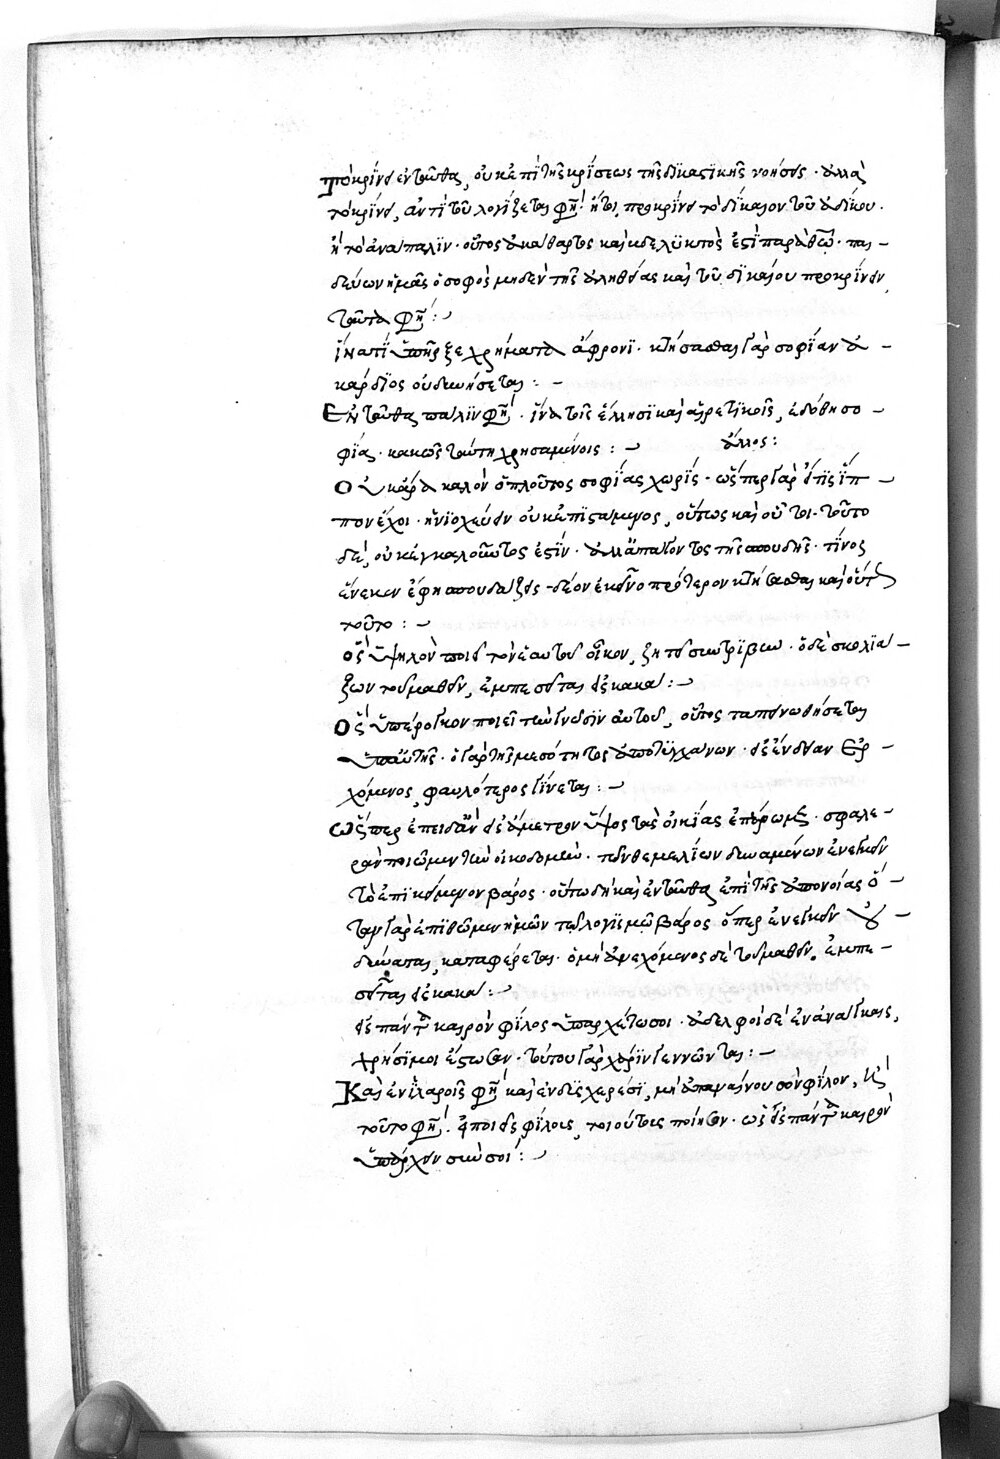 Τὸ κρίνει ἐνταῦθα, οὐκ ἐπὶ τῆς κρίσεως τῆς δικαστικῆς νοήσεις· ἀλλὰ
τὸ κρίνει, ἀντὶ τοῦ λογίζεται φησί· ἤτοι προκρίνει τὸ δίκαιον τοῦ ἀδίκου·
ἢ τὸ ἀνάπαλιν· οὗτος ἀκάθαρτος καὶ βδελυκτὸς ἐστὶ παρὰ θεῷ· παι-
δεύων ἡμᾶς ὁ σοφὸς μηδὲν τῆς ἀληθείας καὶ τοῦ δικαίου προκρίνειν
ταῦτά φησί:
ἵνα τί ὑπῆρξε χρήματα ἄφρονι· κτήσασθαι γὰρ σοφίαν ἀ-
κάρδιος οὐ δυνήσεται:-
Ἐνταῦθα πάλιν φησὶ· ἵνα τί τοῖς ἕλλησι καὶ αἱρετικοῖς, ἐδόθη σο-
φία· κακῶς ταύτῃ χρησαμένοις:- ἄλλος:
Οὐκ ἄρα καλὸν ὁ πλοῦτος σοφίας χωρίς· ὥσπερ γὰρ εἴ τις ἵπ-
πον ἔχοι· ἡνιοχεύειν οὐκ ἐπιστάμενος, οὕτως καὶ οὗτοι· τοῦτο
δὲ, οὐκ ἐγκαλοῦντος ἐστίν· ἀλλ' ἀπάγοντος τῆς σπουδῆς· τίνος
ἕνεκεν ἔφη σπουδάζεις· δέον ἐκεῖνο πρότερον κτήσασθαι καὶ οὕτως
τοῦτο:-
ὃς ὑψηλὸν ποιεῖ τὸν ἑαυτοῦ οἶκον, ζητεῖ συντριβήν· ὁ δὲ σκολιά-
ζων τοῦ μαθεῖν, ἐμπεσεῖται εἰς κακά:-
Ὃς ὑπέρογκον ποιεῖ τὴν γνῶσιν αὐτοῦ, οὗτος ταπεινωθήσεται
ὑπ' αὐτῆς· ὁ γὰρ τῆς μεσότητος ἀποτυγχάνων· εἰς ἔνδειαν ἐρ-
χόμενος, φαυλότερος γίνεται:-
Ὥσπερ ἐπειδὰν εἰς ἄμετρον ὕψος τὰς οἰκίας ἐπάρωμεν· σφαλε-
ρὰν ποιοῦμεν τὴν οἰκοδομήν· τῶν θεμελίων δυναμένων ἐνεγκεῖν
τὸ ἐπικείμενον βάρος· οὕτω δὴ καὶ ἐνταῦθα ἐπὶ τῆς ἀπονοίας ὅ-
ταν γὰρ ἐπιθῶμεν ἡμῶν τῷ λογισμῷ βάρος ὅπερ ἐνεγκεῖν οὐ
δύναται, καταφέρεται· ὁ μὴ ἀνεχόμενος δὲ τοῦ μαθεῖν, ἐμπε-
σεῖται εἰς κακά:-
εἰς πάντα καιρὸν φίλος ὑπαρχέτω σοι· ἀδελφοὶ δὲ ἐν ἀνάγκαις,
χρήσιμοι ἔστωσαν· τούτου γὰρ χάριν γεννῶνται:-
Καὶ ἐν ἱλαροῖς φησὶ καὶ ἐν δυσχερέσι, μὴ ἀπαναίνου σὸν φίλον, καὶ
τοῦτο φησί· ἐποίεις φίλους, τοιούτους ποίησον· ὡς εἰς πάντα καιρὸν
ὑπάρχειν σὺν σοί:-